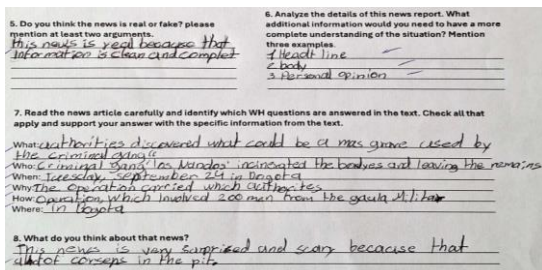 5. Do you think the news is real or fake? please
mention at least two arguments.
this news is real because that
Information is clean and complet
6. Analyze the details of this news report. What
additional information would you need to have a more
complete understanding of the situation? Mention
three examples.
1 Headt line
2 body
3 Personal opinion
7. Read the news article carefully and identify which WH questions are answered in the text. Check all that
apply and support your answer with the specific information from the text.
What: authorities discovered what could be a mas grave used by
the criminel gang"
Who: Criminal gang "los Nandos" incinerated the bodyes and leaving the remains
When: Tuesday, September 24 in Bogota
Why: The operation carried which authorites
How: Operation, which Involved 200 man from the gaula Militar
Where: in bogota
8. What do you think about that news?
This news is very surprised and scary because that
a lot of corseps in the pit.